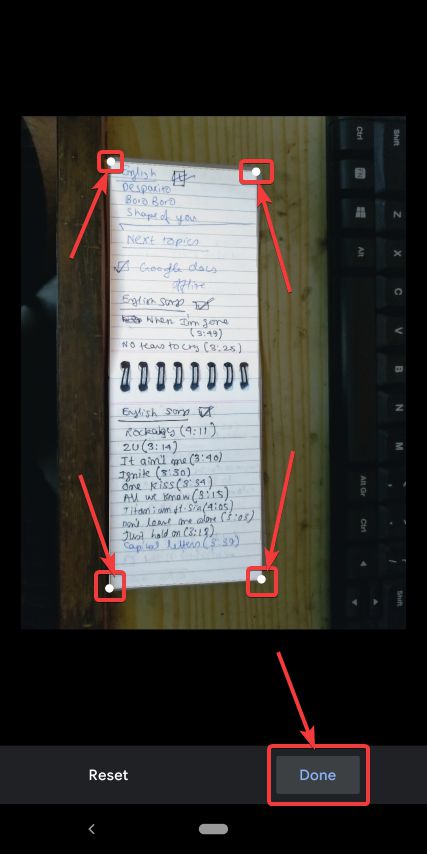 English
Despacito
Boro Boro
Shape of you
Next topics
Google docs
offline
English song
When I'm gone
(3:49)
NO tears to cry (3:25)
English song
Rockabye (4:11)
2U (3:14)
It ain't me (3:40)
Ignite (3:30)
One kiss (3:34)
All we know (3:15)
Titanium ft. Sia (4:05)
Don't leave me alone (3:03)
Just hold on (3:18)
Capital letters (3:39)
Ctrl
Shift
Z
Alt
X
C
V
B
N
M
Alt Gr
Ctrl
Shift
Reset
Done